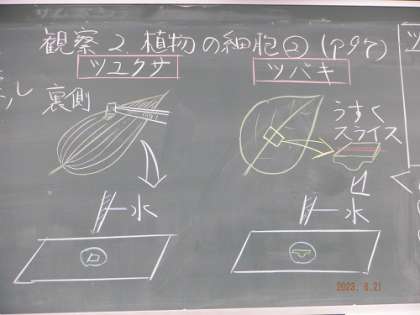 観察2. 植物の細胞② (P97)
ツユクサ
裏側
水
ツバキ
うすく
スライス
水
2023. 6.21